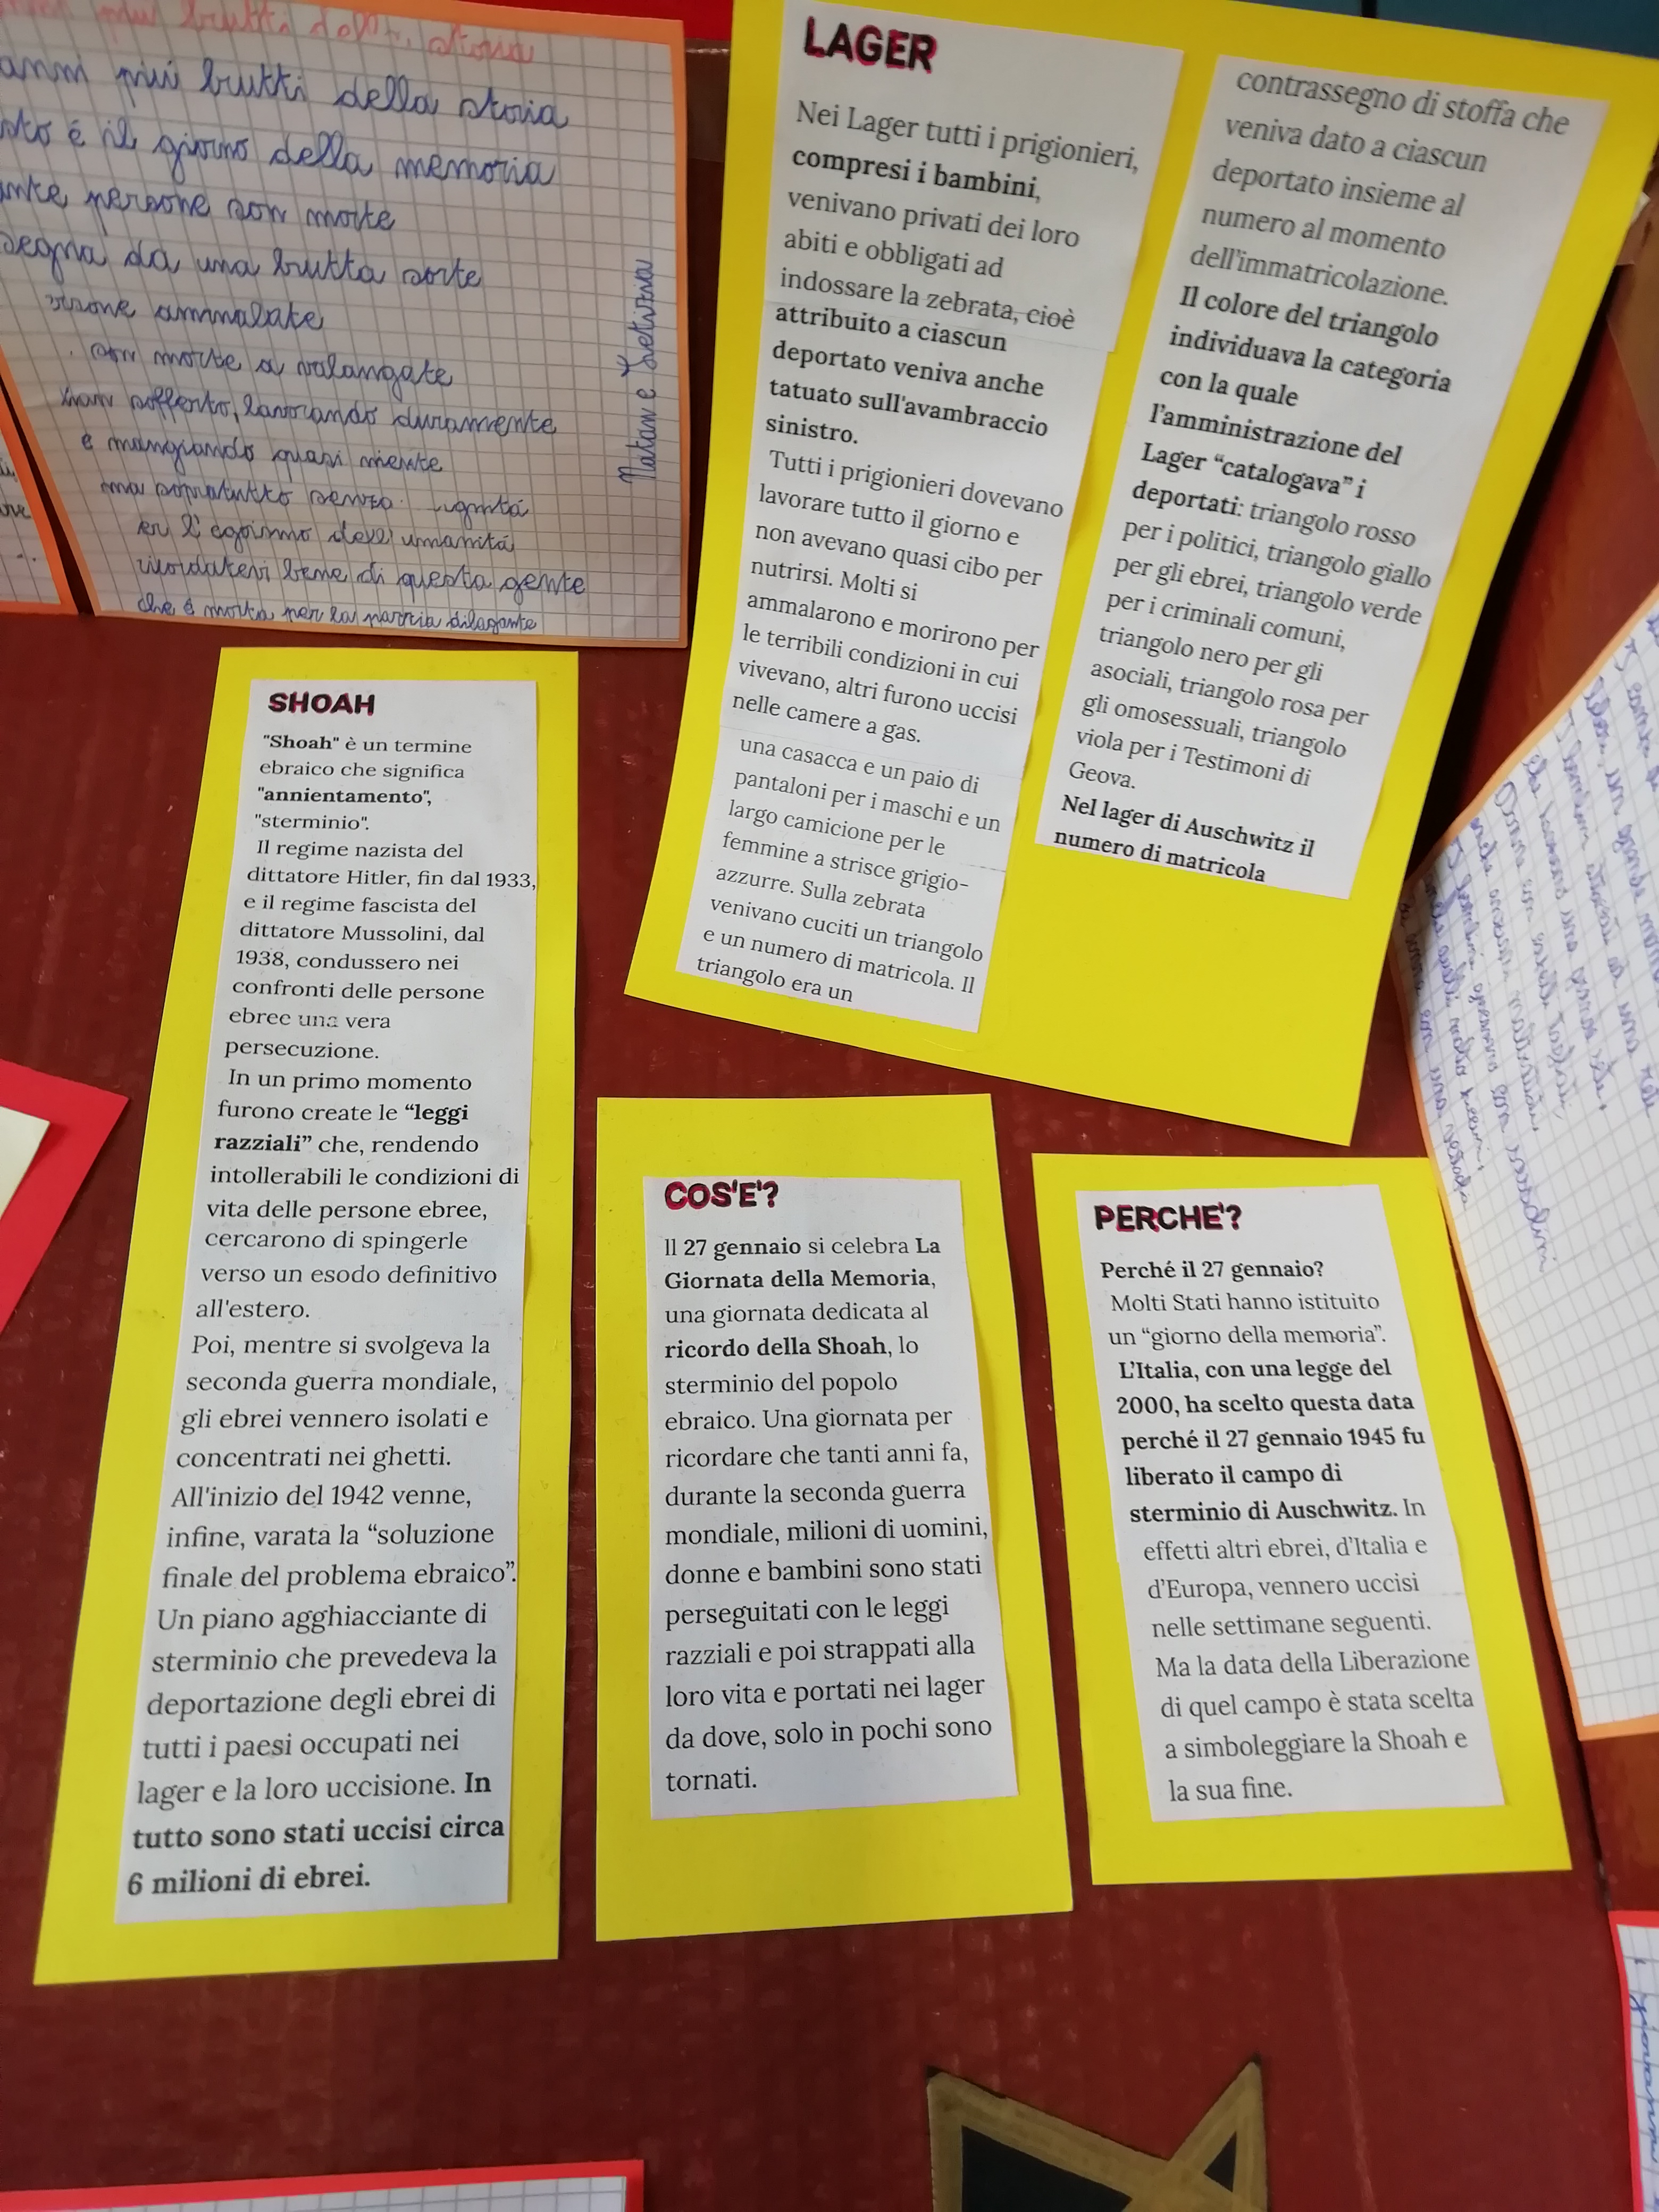 più brutti della storia
anni più brutti della storia
sto é il giorno della memoria
ante persone son morte
segna da una brutta sorte
ersone ammalate
son morte a valangate
han sofferto, lavorando duramente
e mangiando quasi niente
ma sopratutto senza dignitá
er l'egoismo dell'umanitá
ricordatevi bene di questa gente
che é morta per la pazzia dilagante
Natan e Letizia
LAGER
Nei Lager tutti i prigionieri,
compresi i bambini,
venivano privati dei loro
abiti e obbligati ad
indossare la zebrata, cioè
attribuito a ciascun
deportato veniva anche
tatuato sull'avambraccio
sinistro.
Tutti i prigionieri dovevano
lavorare tutto il giorno e
non avevano quasi cibo per
nutrirsi. Molti si
ammalarono e morirono per
le terribili condizioni in cui
vivevano, altri furono uccisi
nelle camere a gas.
una casacca e un paio di
pantaloni per i maschi e un
largo camicione per le
femmine a strisce grigio-
azzurre. Sulla zebrata
venivano cuciti un triangolo
e un numero di matricola. Il
triangolo era un
contrassegno di stoffa che
veniva dato a ciascun
deportato insieme al
numero al momento
dell'immatricolazione.
Il colore del triangolo
individuava la categoria
con la quale
l'amministrazione del
Lager “catalogava” i
deportati: triangolo rosso
per i politici, triangolo giallo
per gli ebrei, triangolo verde
per i criminali comuni,
triangolo nero per gli
asociali, triangolo rosa per
gli omosessuali, triangolo
viola per i Testimoni di
Geova.
Nel lager di Auschwitz il
numero di matricola
SHOAH
"Shoah" è un termine
ebraico che significa
"annientamento",
"sterminio".
Il regime nazista del
dittatore Hitler, fin dal 1933,
e il regime fascista del
dittatore Mussolini, dal
1938, condussero nei
confronti delle persone
ebree una vera
persecuzione.
In un primo momento
furono create le “leggi
razziali” che, rendendo
intollerabili le condizioni di
vita delle persone ebree,
cercarono di spingerle
verso un esodo definitivo
all'estero.
Poi, mentre si svolgeva la
seconda guerra mondiale,
gli ebrei vennero isolati e
concentrati nei ghetti.
All'inizio del 1942 venne,
infine, varata la “soluzione
finale del problema ebraico”.
Un piano agghiacciante di
sterminio che prevedeva la
deportazione degli ebrei di
tutti i paesi occupati nei
lager e la loro uccisione. In
tutto sono stati uccisi circa
6 milioni di ebrei.
COS'E'?
Il 27 gennaio si celebra La
Giornata della Memoria,
una giornata dedicata al
ricordo della Shoah, lo
sterminio del popolo
ebraico. Una giornata per
ricordare che tanti anni fa,
durante la seconda guerra
mondiale, milioni di uomini,
donne e bambini sono stati
perseguitati con le leggi
razziali e poi strappati alla
loro vita e portati nei lager
da dove, solo in pochi sono
tornati.
PERCHE'?
Perché il 27 gennaio?
Molti Stati hanno istituito
un “giorno della memoria”.
L'Italia, con una legge del
2000, ha scelto questa data
perché il 27 gennaio 1945 fu
liberato il campo di
sterminio di Auschwitz. In
effetti altri ebrei, d'Italia e
d'Europa, vennero uccisi
nelle settimane seguenti.
Ma la data della Liberazione
di quel campo è stata scelta
a simboleggiare la Shoah e
la sua fine.